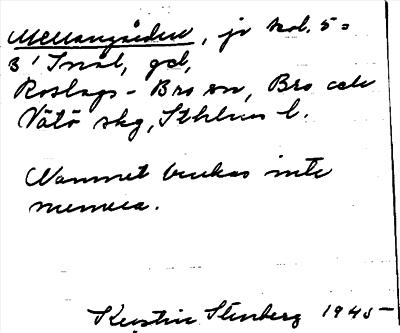 Mellangården, jr kol. 5 =
3' Snål, gd,
Roslags-Bro sn, Bro och
Vätö skg, Sthlms l.
Namnet brukas inte
numera.
Kerstin Stenberg 1945